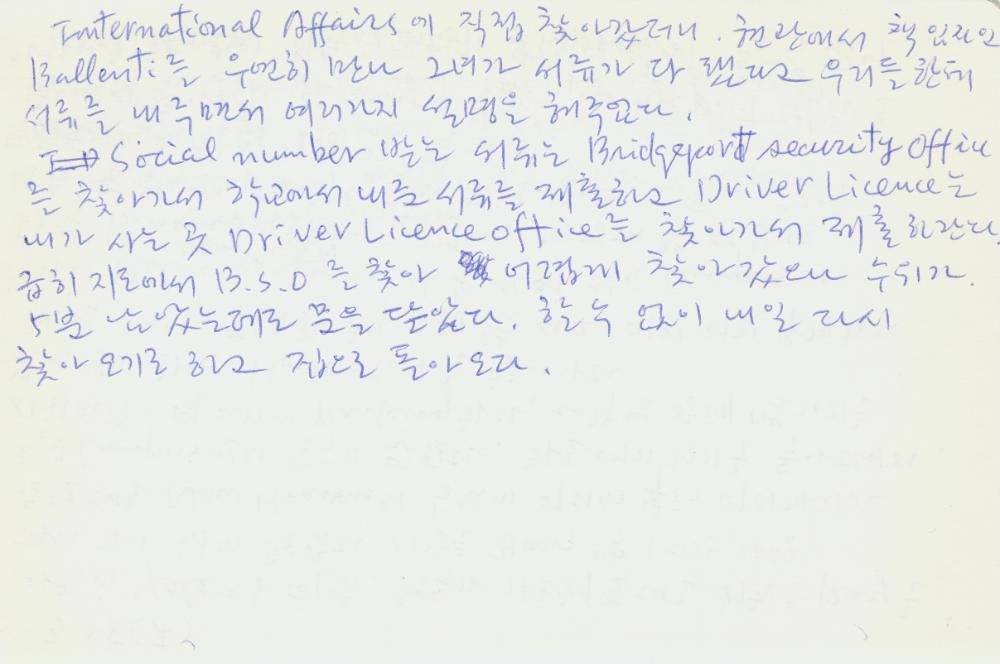 International Affairs에 직접 찾아갔더니. 현관에서 책임자인
Ballenti를 우연히 만나 그녀가 서류가 다 됐다고 우리들한테
서류를 내주면서 여러가지 설명을 해주었다.
Social number 받는 서류는 Bridgeport security office
를 찾아가서 학교에서 내준 서류를 제출하고 Driver Licence는
내가 사는 곳 Driver Licence office를 찾아가서 제출하란다.
급히 지도에서 B.S.O를 찾아 어렵게 찾아갔으나 수위가.
5분 남았는데도 문을 닫았다. 할 수 없이 내일 다시
찾아 오기로 하고 집으로 돌아 오다.